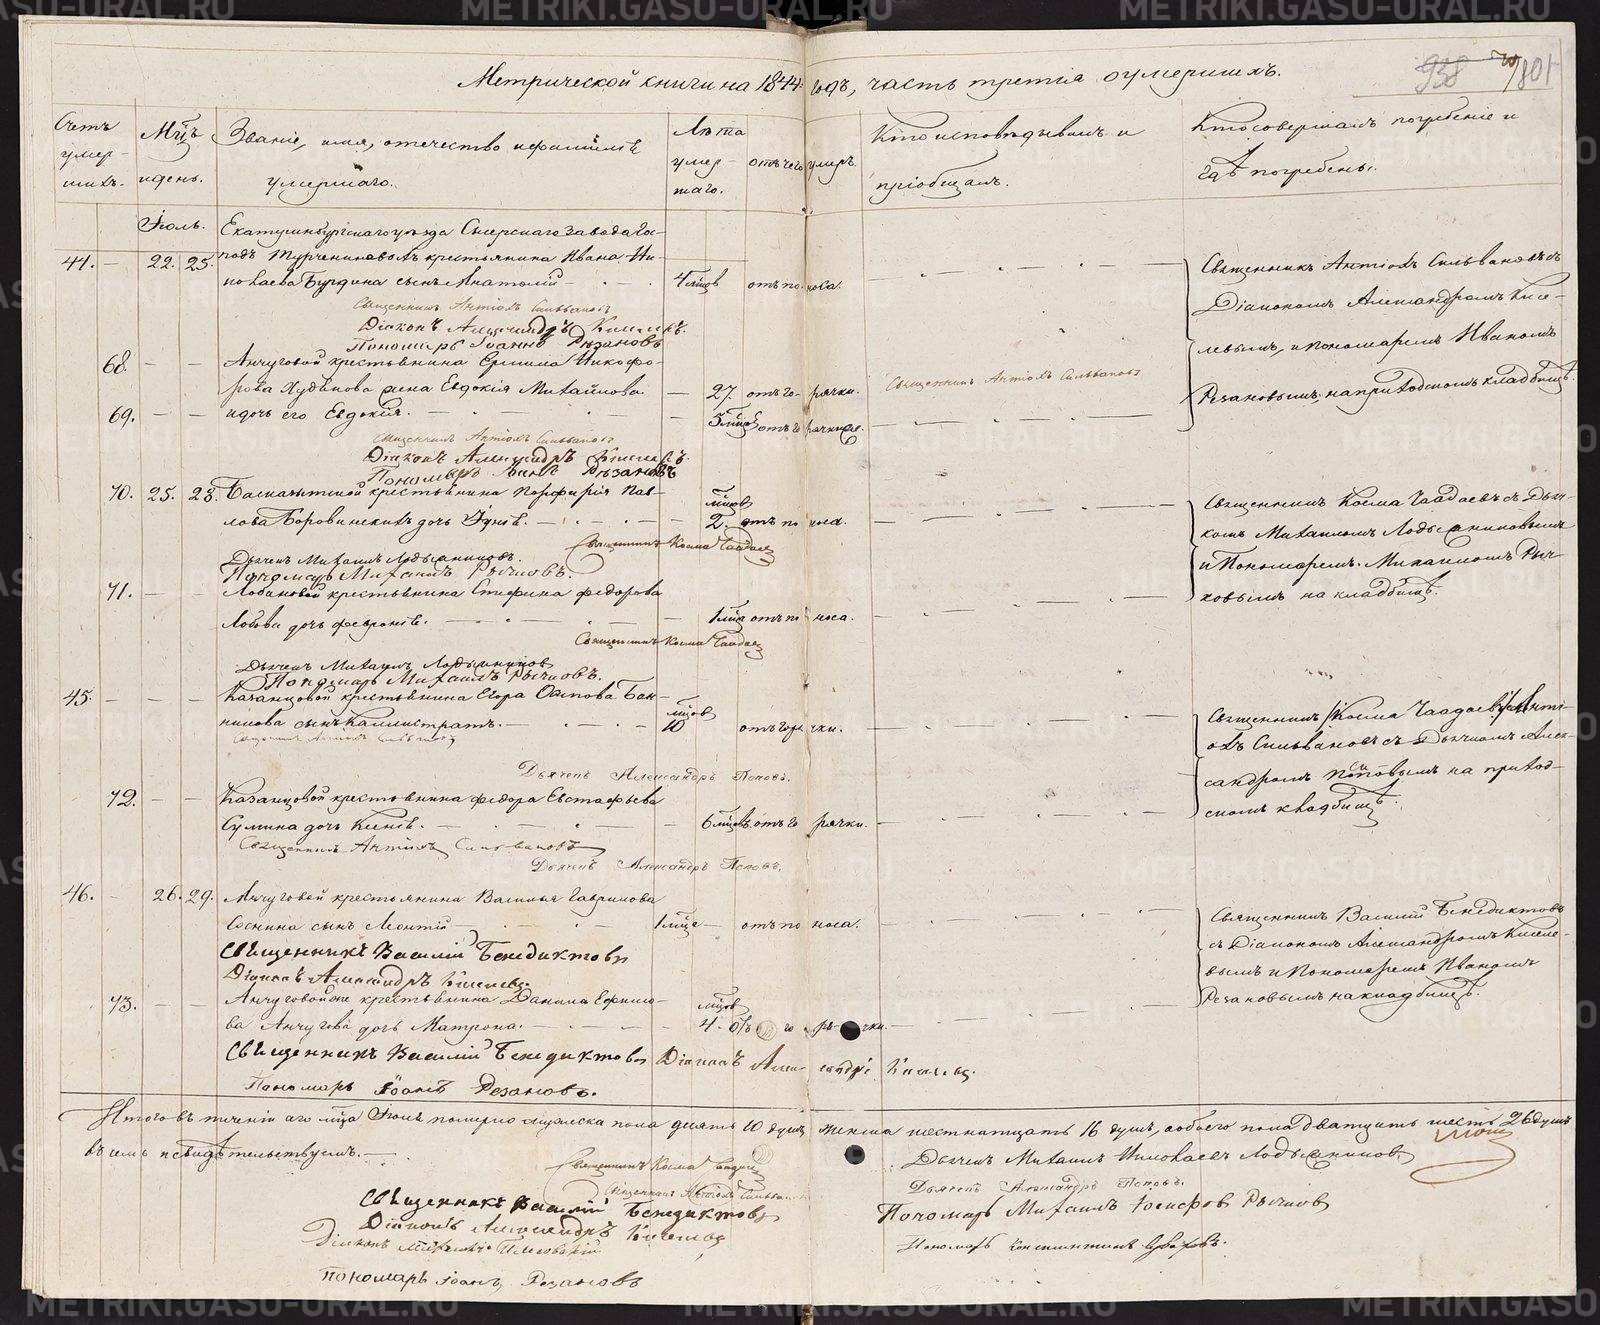 Метрической книги на 1844 годъ, часть третiя о умершихъ.
938 801
Счетъ умершихъ.
Мцъ и день.
Званiе, имя, отечество и фамилiя умершаго.
Лѣта умершаго.
отъ чего умеръ.
Кто исповѣдывалъ и прiобщалъ.
Кто совершалъ погребенiе и гдѣ погребены.
Iюль.
Екатеринбургскаго уѣзда Сысерскаго завода Гос-
41. 22. 25. подъ Турчениновыхъ крестьянина Ивана Ни-
колаева Бурдина сынъ Анатолiй 4 мцов отъ поноса.
Священникъ Антiохъ Сильвановъ съ
Дiакономъ Александромъ Кисе-
левымъ, и пономаремъ Иваномъ
Резановымъ, на приходскомъ кладбищѣ.
Священникъ Антiохъ Сильвановъ
Дiаконъ Александръ Киселевъ.
Пономарь Iоаннъ Рѣзановъ
68. Анчуговой крестьянина Ермила Никофо-
рова Худякова жена Евдокiя Михайлова 27. отъ горячки. Священникъ Антiохъ Сильвановъ
69. и дочь его Евдокiя. 5 мцов отъ горячки же.
Священникъ Антiохъ Сильвановъ
Дiаконъ Александръ Киселевъ.
Пономарь Iоаннъ Рѣзановъ
70. 25. 28. крестьянина Порфирiя Пав-
лова Боровинскихъ дочь мцов 2. отъ поноса.
Священникъ Косма Чаадаевъ съ Дьяч-
комъ Михаиломъ Лодыжниковымъ
и Пономаремъ Михаиломъ Рыч-
ковымъ на кладбищѣ.
Священникъ Косма Чаадаевъ
Дьячекъ Михаилъ Лодыжниковъ.
Пономарь Михаилъ Рычковъ.
71. Лобановой крестьянина Стефана Федорова
Лобова дочь Феvронiя. 1 мца отъ поноса.
Священникъ Косма Чаадаевъ
Дьячекъ Михаилъ Лодыжниковъ
Пономарь Михаилъ Рычковъ.
45. Казанцовой крестьянина Егора Осипова Бан-
никова сынъ Каллистратъ. мцов 10 отъ горячки.
Священникъ /Косма Чаадаевъ/ Анті-
охъ Сильвановъ съ Дьячкомъ Алек-
сандромъ Поповымъ на приход-
скомъ кладбищѣ.
Священникъ Антiохъ Сильвановъ
Дьячекъ Александръ Поповъ.
72. Казанцовой крестьянина Федора Евстафьева
Сулина дочь Ксенiя. 6 мцовъ отъ горячки.
Священникъ Антiохъ Сильвановъ
Дьячекъ Александръ Поповъ.
46. 26. 29. Анчуговой крестьянина Василья Гаврилова
Соснина сынъ Леонтiй 1 мца отъ поноса.
Священникъ Василiй Бенедиктовъ
съ Дiакономъ Александромъ Киселе-
вымъ и Пономаремъ Иваномъ
Резановымъ на кладбищѣ.
Священникъ Василiй Бенедиктовъ
Дiаконъ Александръ Киселевъ.
73. Анчуговой же крестьянина Данила Ефимо-
ва Анчугова дочь Матрона. мцов 4. отъ горячки.
Священникъ Василiй Бенедиктовъ Дiаконъ Александръ Киселевъ.
Пономарь Iоаннъ Резановъ.
Итого въ теченiи сего мца Iюля померло мужеска пола десять 10 душъ женска шестнатцать 16 душъ, а обоего пола дватцать шесть 26 душъ
въ чемъ и свидѣтельствуемъ.
Священникъ Косма Чаадаевъ
Священникъ Антiохъ Сильвановъ
Священникъ Василiй Бенедиктовъ
Дiаконъ Александръ Киселевъ
Дiаконъ
Пономарь Iоаннъ Резановъ
Дьячекъ Михаилъ Николаевъ Лодыжниковъ
Дьячекъ Александръ Поповъ.
Пономарь Михаилъ Рычков
Пономарь Константинъ
METRIKI.GASU-URAL.RU